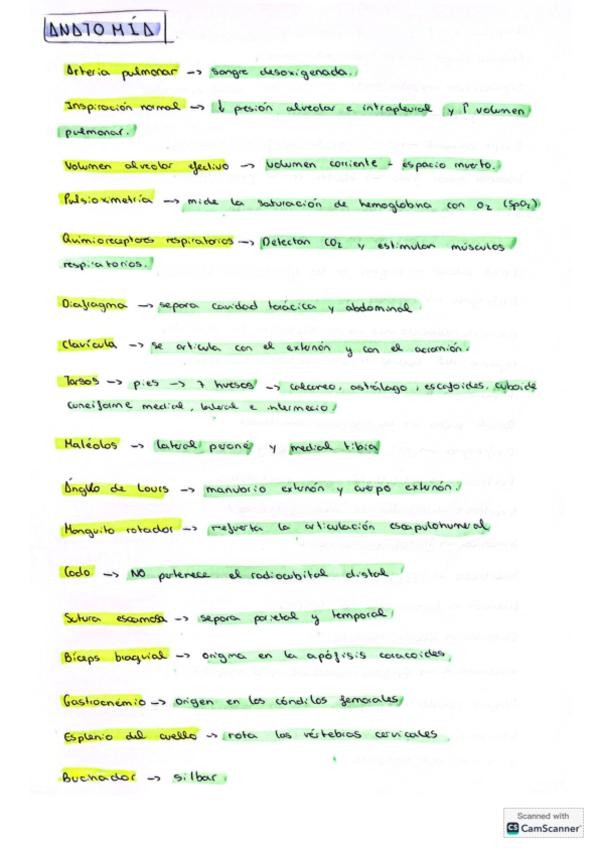 ANATOMÍA
Arteria pulmonar -> sangre desoxigenada.
Inspiración normal -> ↓ presión alveolar e intrapleural y ↑ volumen
pulmonar.
Volumen alveolar efectivo -> volumen corriente - espacio muerto.
Pulsioximetría -> mide la saturación de hemoglobina con O2 (SpO2)
Quimioreceptores respiratorios -> Detectan CO2 y estimulan músculos
respiratorios.
Diafragma -> separa cavidad torácica y abdominal
Clavícula -> se articula con el externón y con el acromión.
Tarsos -> pies -> 7 huesos -> calcaneo, astrálago, escafoides, cuboide
cuneiforme medial, lateral e intermecio
Maléolos -> lateral peroné y medial tibia
Ángulo de Lours -> manubrio externón y cuerpo externón.
Manguito rotador -> refuerza la articulación escapulohumeral
Codo -> NO pertenece el radiocubital distal
Sutura escamosa -> separa parietal y temporal
Bíceps braquial -> origina en la apófisis coracoides
Gastrocnémio -> origen en los cóndilos femorales
Esplenio del cuello -> rota las vértebras cervicales
Buchador -> silbar
Scanned with
CS CamScanner